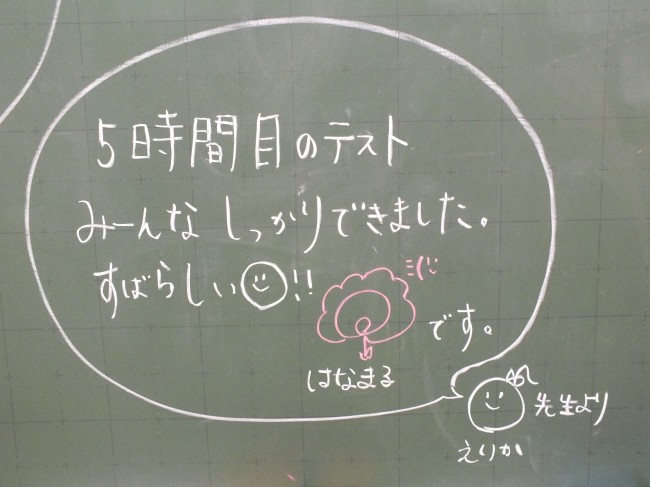 5時間目のテスト
みーんなしっかりできました。
すばらしい!!
です。
はなまる
先生より
えりか